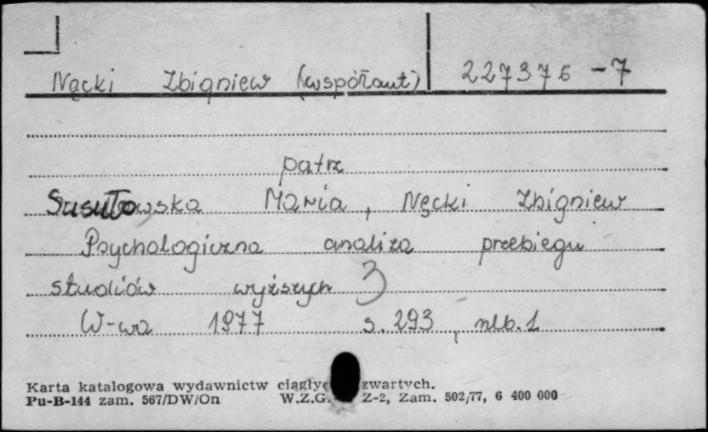 Nęcki Zbigniew (współaut) 227376-7
patrz
Susułowska Maria, Nęcki Zbigniew
Psychologiczna analiza przebiegu
studiów wyższych 3
W-wa 1977 s. 293, nlb. 1
Karta katalogowa wydawnictw zwartych.
Pu-B-144 zam. 567/DW/On W.Z.G. Z-2, Zam. 502/77, 6 400 000